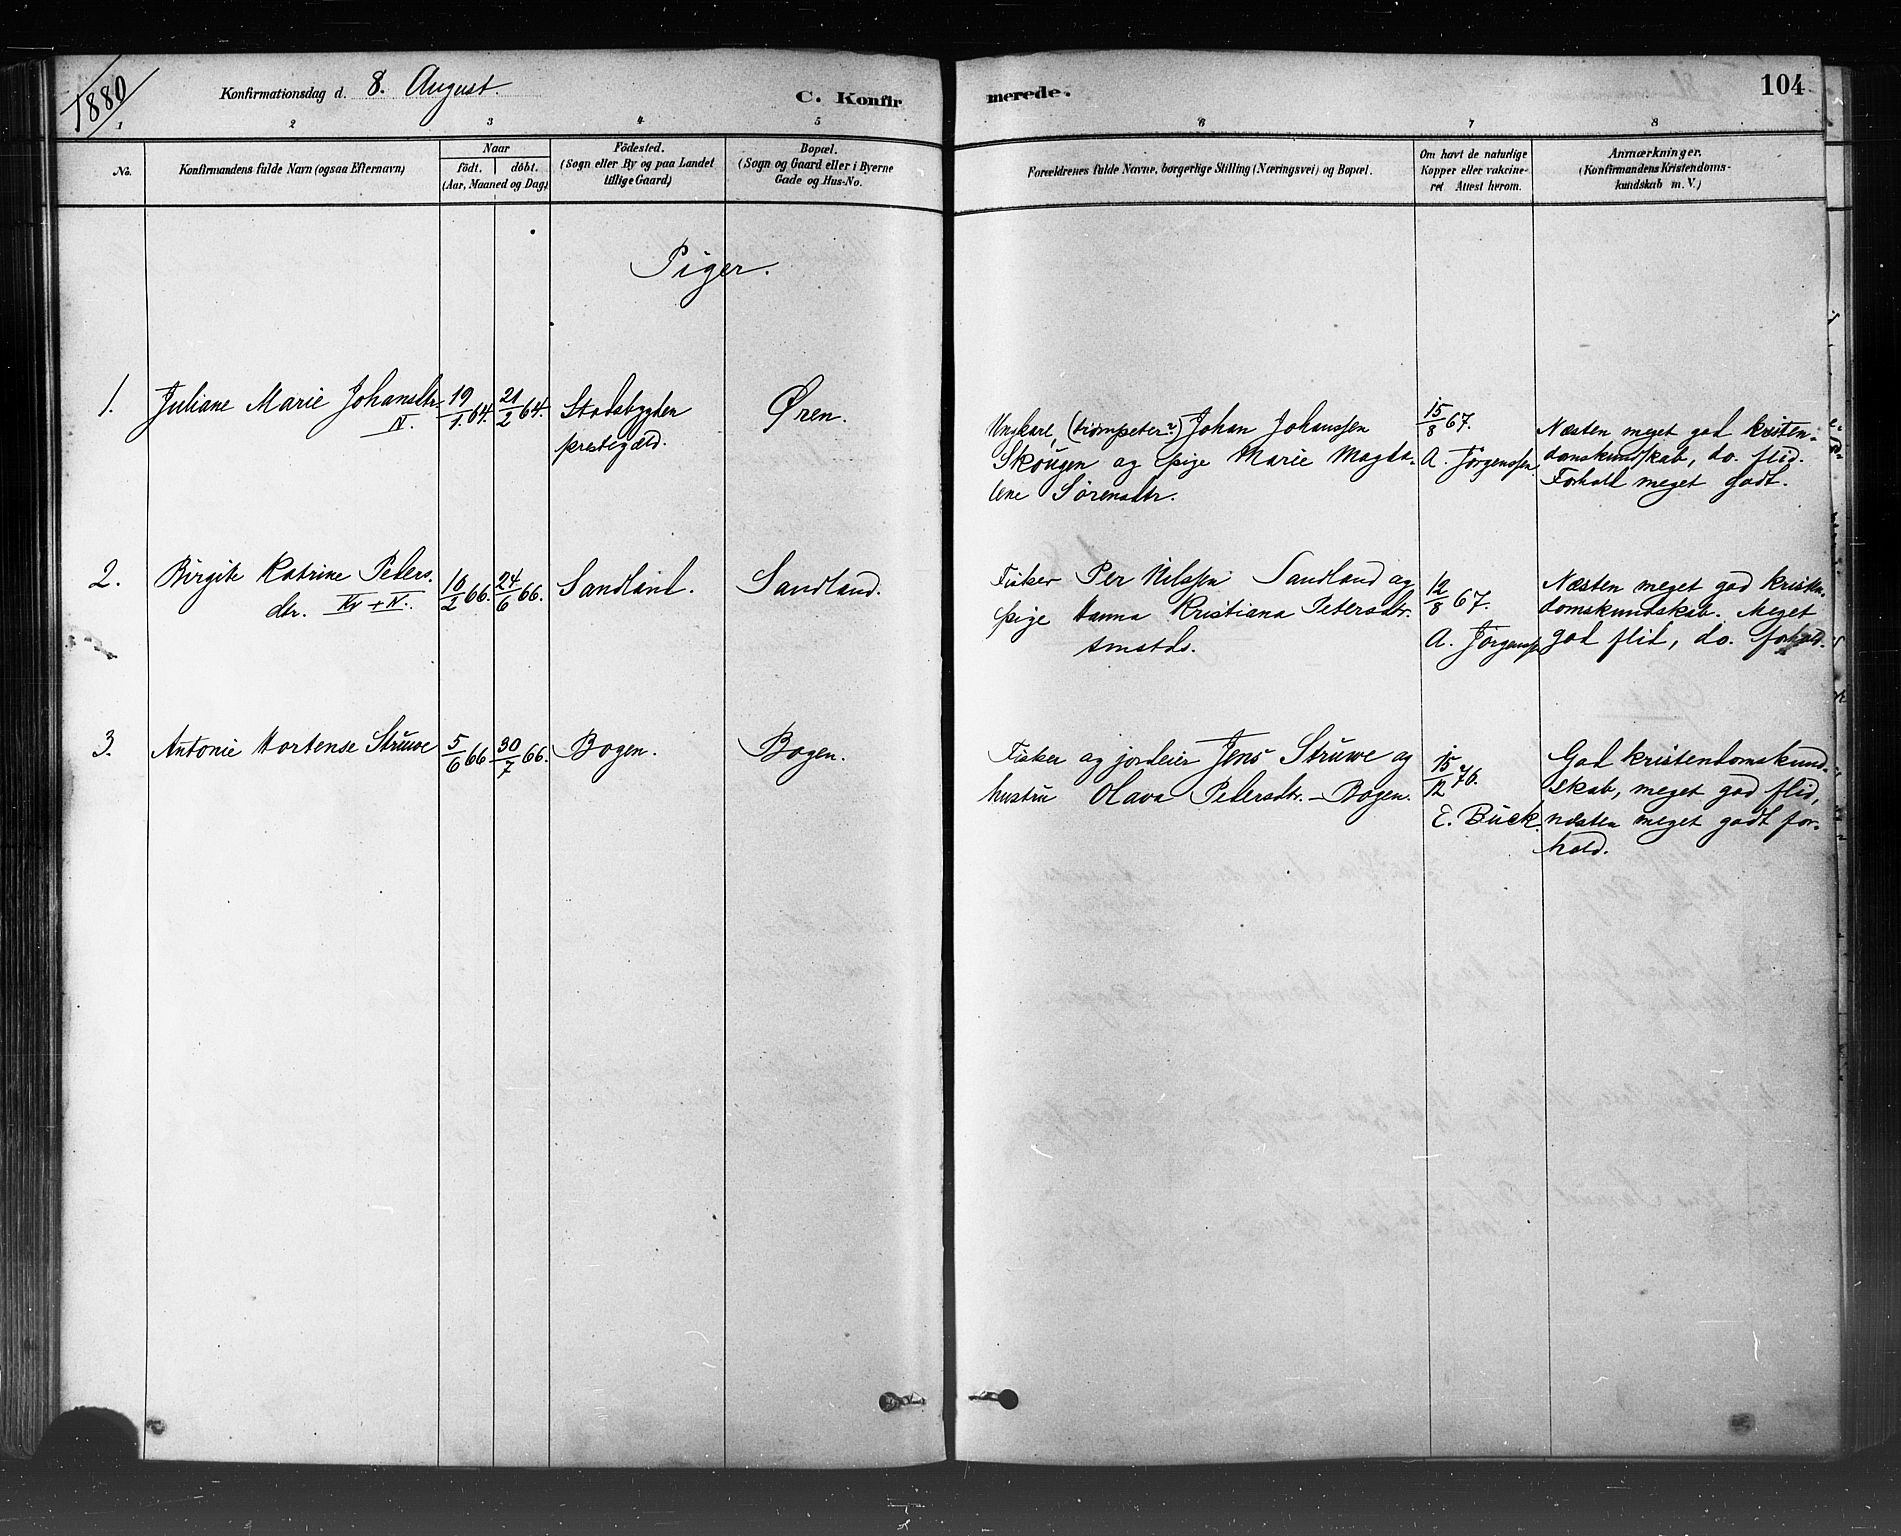 1880
Konfirmationsdag d. 8. August.
C. Konfir
merede.
104
1 2 3 4 5 6 7 8
No.
Konfirmandens fulde Navn (ogsaa Efternavn)
Naar
födt. döbt.
(Aar, Maaned og Dag)
Födested.
(Sogn eller By og paa Landet
tillige Gaard)
Bopæl.
(Sogn og Gaard eller i Byerne
Gade og Hus-No.
Forældrenes fulde Navne, borgerlige Stilling (Næringsvei) og Bopæl.
Om havt de naturlige
Kopper eller vakcine-
ret Attest herom.
Anmærkninger,
(Konfirmandens Kristendoms-
kundskab m. V.)
Piger.
1.
Juliane Marie Johansdtr.
N.
19/1 64.
21/2 64.
Stadsbygden
prestegæld.
Øren.
Ungkarl, (trompeter?) Johan Johanssen
Skougen og pige Marie Magda-
lene Sörensdtr.
15/8 67.
A. Jörgenssen
Næsten meget god kristen-
domskundskab, do. flid.
Forhold meget godt.
2.
Birgite Katrine Peders.
dtr. Kv + N.
16/2 66.
24/6 66.
Sandland.
Sandland.
Fisker Per Nilssen Sandland og
pige Hanna Kristiana Petersdtr.
smstds.
12/8 67.
A. Jörgenssen
Næsten meget god kristen-
domskundskab. Meget
god flid, do. forhold.
3.
Antonie Hortense Struwe
5/6 66
30/7 66.
Bogen.
Bogen.
Fisker og jordeier Jens Struwe og
hustru Olava Pedersdtr. - Bogen.
15/12 76.
E. Buck.
God kristendomskund-
skab, meget god flid,
næsten meget godt for-
hold.